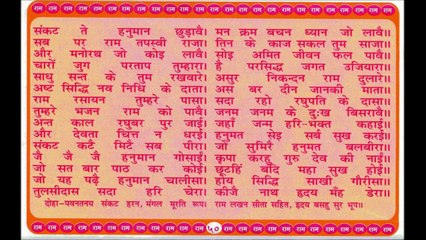 राम राम राम राम राम राम राम राम राम राम राम राम
संकट ते हनुमान छुड़ावै। मन क्रम बचन ध्यान जो लावै॥
सब पर राम तपस्वी राजा। तिन के काज सकल तुम साजा॥
और मनोरथ जो कोइ लावै। सोइ अमित जीवन फल पावै॥
चारों जुग परताप तुम्हारा। है परसिद्ध जगत उजियारा॥
साधु सन्त के तुम रखवारे। असुर निकन्दन राम दुलारे॥
अष्ट सिद्धि नव निधि के दाता। अस बर दीन जानकी माता॥
राम रसायन तुम्हरे पासा। सदा रहो रघुपति के दासा॥
तुम्हरे भजन राम को पावै। जनम जनम के दुःख बिसरावै॥
अन्त काल रघुबर पुर जाई। जहाँ जन्म हरि-भक्त कहाई॥
और देवता चित्त न धरई। हनुमत सेइ सर्ब सुख करई॥
संकट कटै मिटै सब पीरा। जो सुमिरै हनुमत बलबीरा॥
जै जै जै हनुमान गोसाईं। कृपा करहु गुरु देव की नाईं॥
जो सत बार पाठ कर कोई। छूटहिं बंदि महा सुख होई॥
जो यह पढ़ै हनुमान चालीसा। होय सिद्धि साखी गौरीसा॥
तुलसीदास सदा हरि चेरा। कीजै नाथ हृदय मँह डेरा॥
दोहा-पवनतनय संकट हरन, मंगल मूरति रूप। राम लखन सीता सहित, हृदय बसहु सुर भूप॥
राम राम राम राम राम ५० राम राम राम राम राम